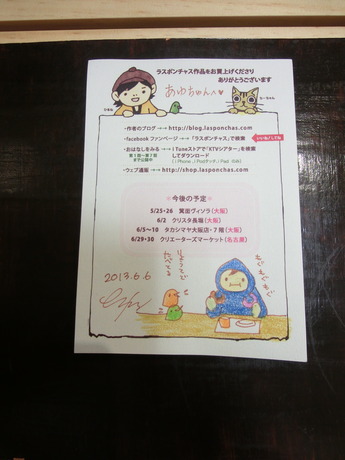 ラスポンチャス作品をお買上げくださり
ありがとうございます
あゆちゃんへ♥
・作者のブログ →→ http://blog.lasponchas.com
・facebook ファンページ →→「ラスポンチャス」で検索
いいね!してね
・おはなしをみる →→ iTuneストアで「KTVシアター」を検索
してダウンロード
第1話~第7話
まで公開中
( i Phone ./ iPodタッチ ./ iPad のみ)
・ウェブ通販 →→ http://shop.lasponchas.com
今後の予定
5/25・26 箕面ヴィソラ(大阪)
6/2 クリスタ長堀(大阪)
6/5~10 タカシマヤ大阪店・7階(大阪)
6/29・30 クリエーターズマーケット(名古屋)
2013.6.6
りょうてで
たべてる
もぐもぐもぐ